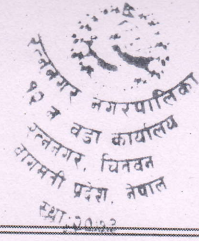 रत्ननगर नगरपालिका
१२ नं वडा कार्यालय
रत्ननगर, चितवन
वागमती प्रदेश, नेपाल
स्था.